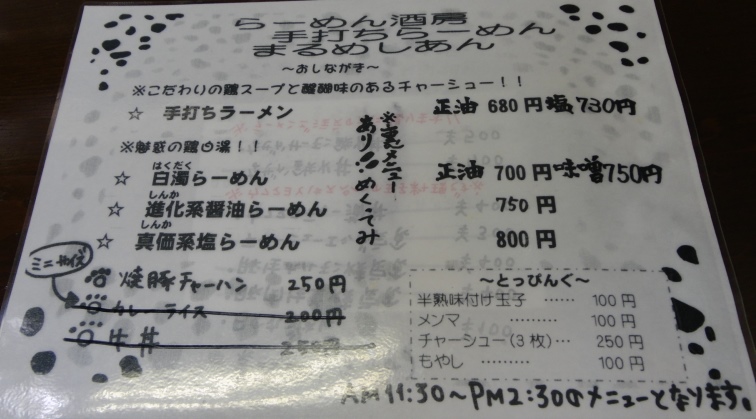 らーめん酒房
手打ちらーめん
まるめしあん
～おしながき～
※こだわりの鶏スープと醍醐味のあるチャーシュー！！
☆ 手打ちラーメン 正油 680円 塩 730円
※魅惑の鶏白湯！！
はくだく
☆ 白濁らーめん 正油 700円 味噌750円
しんか
☆ 進化系醤油らーめん 750円
しんか
☆ 真価系塩らーめん 800円
※裏メニュー
あり めくってみ
ミニサイズ
焼豚チャーハン 250円
カレーライス 200円
牛丼 250円
～とっぴんぐ～
半熟味付け玉子 …… 100円
メンマ ……… 100円
チャーシュー（3枚）… 250円
もやし ……… 100円
AM11:30～PM2:30のメニューとなります。